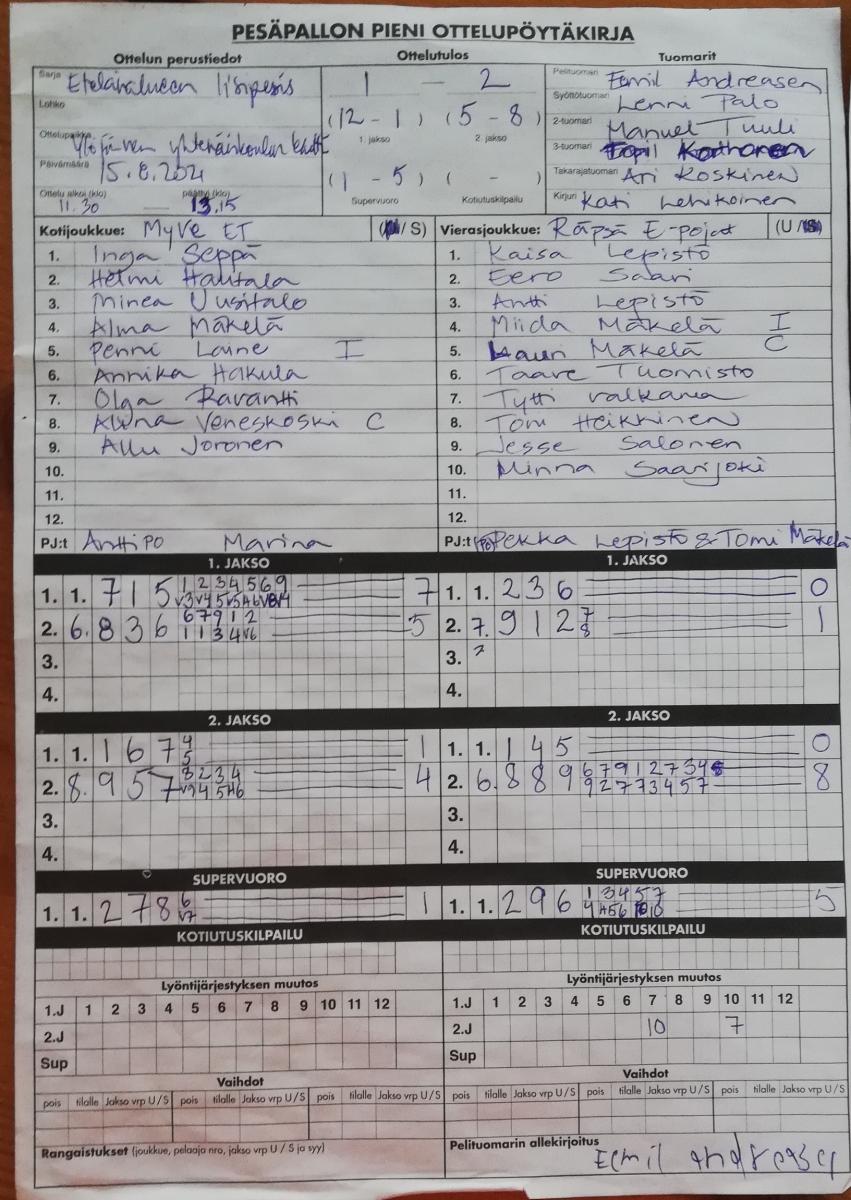 PESÄPALLON PIENI OTTELUPÖYTÄKIRJA
Ottelun perustiedot
Ottelutulos
Tuomarit
Sarja
1 — 2
Pelituomari Eemil Andreasen
Lohko
(12 - 1) (5 - 8)
Syöttötuomari Lenni Palo
1. jakso 2. jakso
2-tuomari Manuel Tuuli
Ottelupaikka Ylöjärven yhtenäiskoulun kenttä
3-tuomari
Päivämäärä 15.8.2021
(1 - 5) ( - )
Takarajatuomari Ari Koskinen
Ottelu alkoi (klo) päättyi (klo)
11.30 13.15
Supervuoro Kotiutuskilpailu
Kirjuri Kati Lehikoinen
Kotijoukkue: MyVe ET (U/S)
Vierasjoukkue: Räpsä E-pojat (U/S)
1. Inga Seppä
1. Kaisa Lepistö
2. Helmi Hautala
2. Eero Saari
3. Minea Uusitalo
3. Antti Lepistö
4. Alma Mäkelä
4. Miida Mäkelä I
5. Penni Laine I
5. Lauri Mäkelä C
6. Annika Hakula
6. Taave Tuomisto
7. Olga Ravantti
7. Tytti Valkama
8. Alina Veneskoski C
8. Tomi Heikkinen
9. Allu Joronen
9. Jesse Salonen
10.
10. Minna Saarijoki
11.
11.
12.
12.
PJ:t Antti PO Marina
PJ:t (PO) Pekka Lepistö & Tomi Mäkelä
1. JAKSO
1. JAKSO
1. 1. 7 1 5 1 2 3 4 5 6 9 7
1. 1. 2 3 6 0
2. 6. 8 3 6 6 7 9 1 2 5
1 1 3 4 V6
2. 7. 9 1 2 7 1
8
3.
3. 2
4.
4.
2. JAKSO
2. JAKSO
1. 1. 1 6 7 4 1
5
1. 1. 1 4 5 0
2. 8. 9 5 7 8 2 3 4 4
2. 6. 8 8 9 6 7 9 1 2 7 3 4 8
9 2 7 7 3 4 5 7
3.
3.
4.
4.
SUPERVUORO
SUPERVUORO
1. 1. 2 7 8 6 1
V7
1. 1. 2 9 6 1 3 4 5 7 5
KOTIUTUSKILPAILU
KOTIUTUSKILPAILU
Lyöntijärjestyksen muutos
Lyöntijärjestyksen muutos
1.J 1 2 3 4 5 6 7 8 9 10 11 12
1.J 1 2 3 4 5 6 7 8 9 10 11 12
2.J
2.J 10 7
Sup
Sup
Vaihdot
Vaihdot
pois tilalle Jakso vrp U/S pois tilalle Jakso vrp U/S pois tilalle Jakso vrp U/S
pois tilalle Jakso vrp U/S pois tilalle Jakso vrp U/S pois tilalle Jakso vrp U/S
Rangaistukset (joukkue, pelaaja nro, jakso vrp U / S ja syy)
Pelituomarin allekirjoitus
Eemil Andreasen